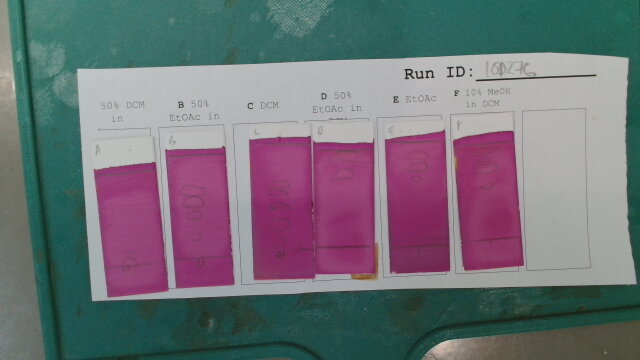 Run ID:
50% DCM in
B 50% EtOAc in
C DCM
D 50% EtOAc in
E EtOAc
F 10% MeOH in DCM
A
B
C
D
E
F